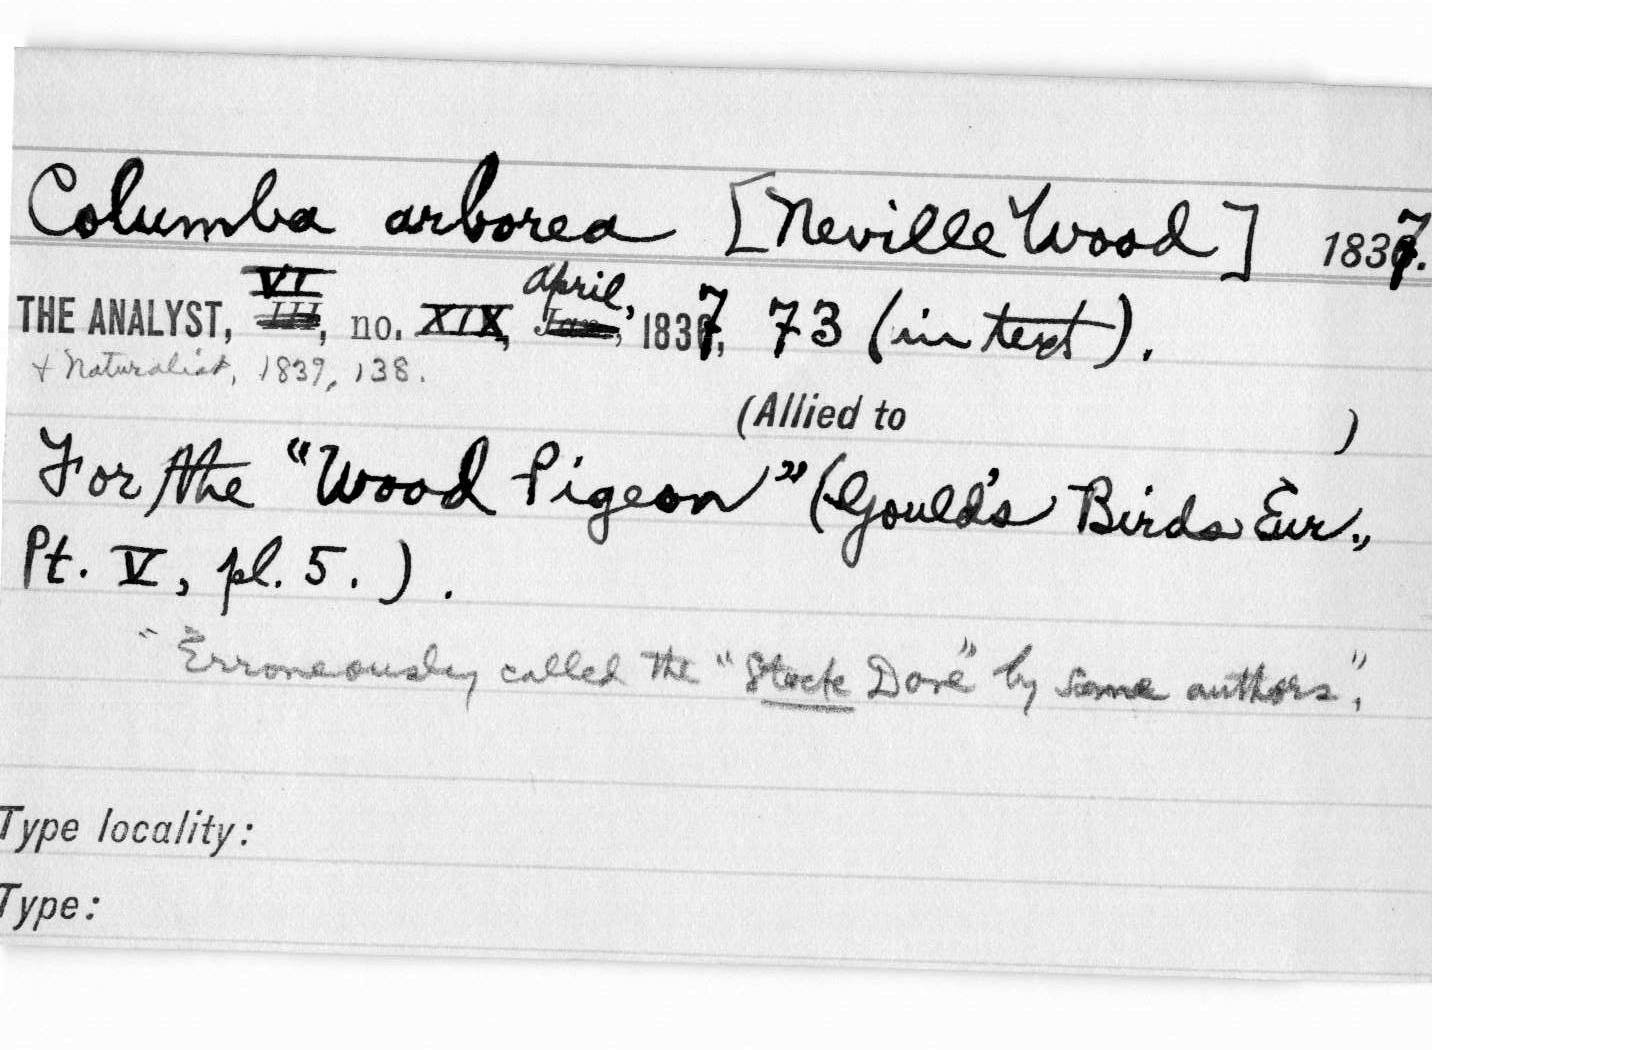 Columba arborea [Neville Wood] 1837.
THE ANALYST, VI, no. XIX, April, 1837, 73 (in text).
+ Naturalist, 1839, 138.
(Allied to )
For the "Wood Pigeon" (Gould's Birds Eur.,
Pt. V, pl. 5.).
"Erroneously called the "Stock Dove" by some authors".
Type locality:
Type: